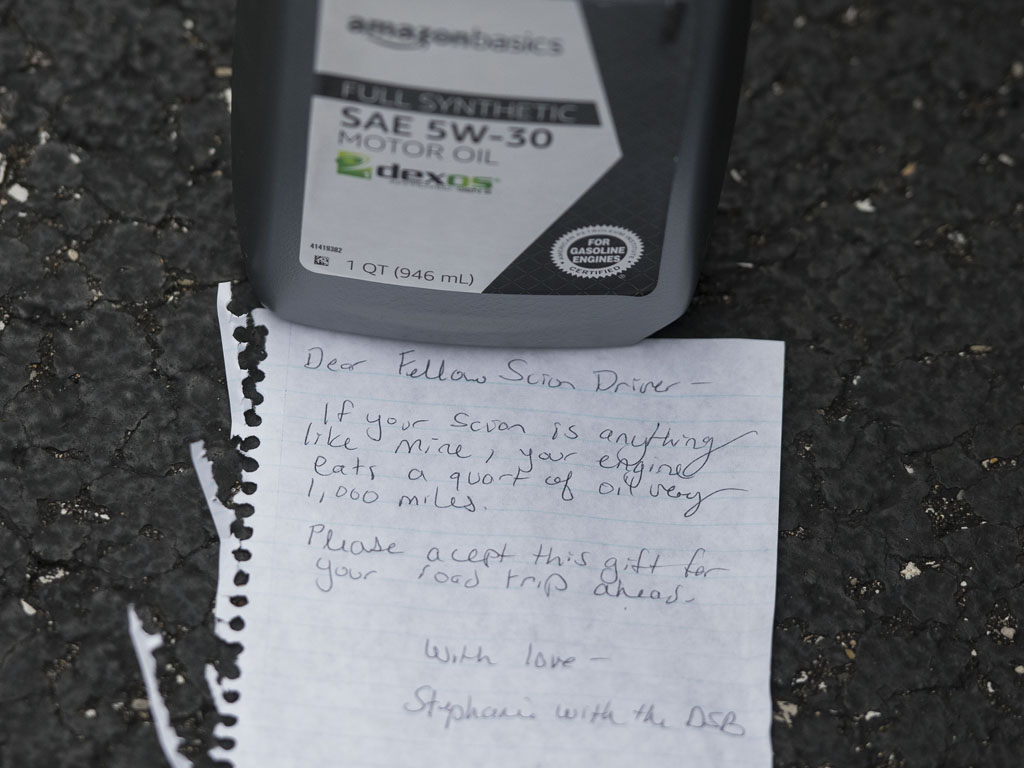 amazonbasics
FULL SYNTHETIC
SAE 5W-30
MOTOR OIL
dexos
41419382
1 QT (946 mL)
FOR
GASOLINE
ENGINES
CERTIFIED
Dear Fellow Scion Driver -
If your Scion is anything
like mine, your engine
eats a quart of oil very
1,000 miles.
Please acept this gift for
your road trip ahead.
With love -
Stephanie with the DSB